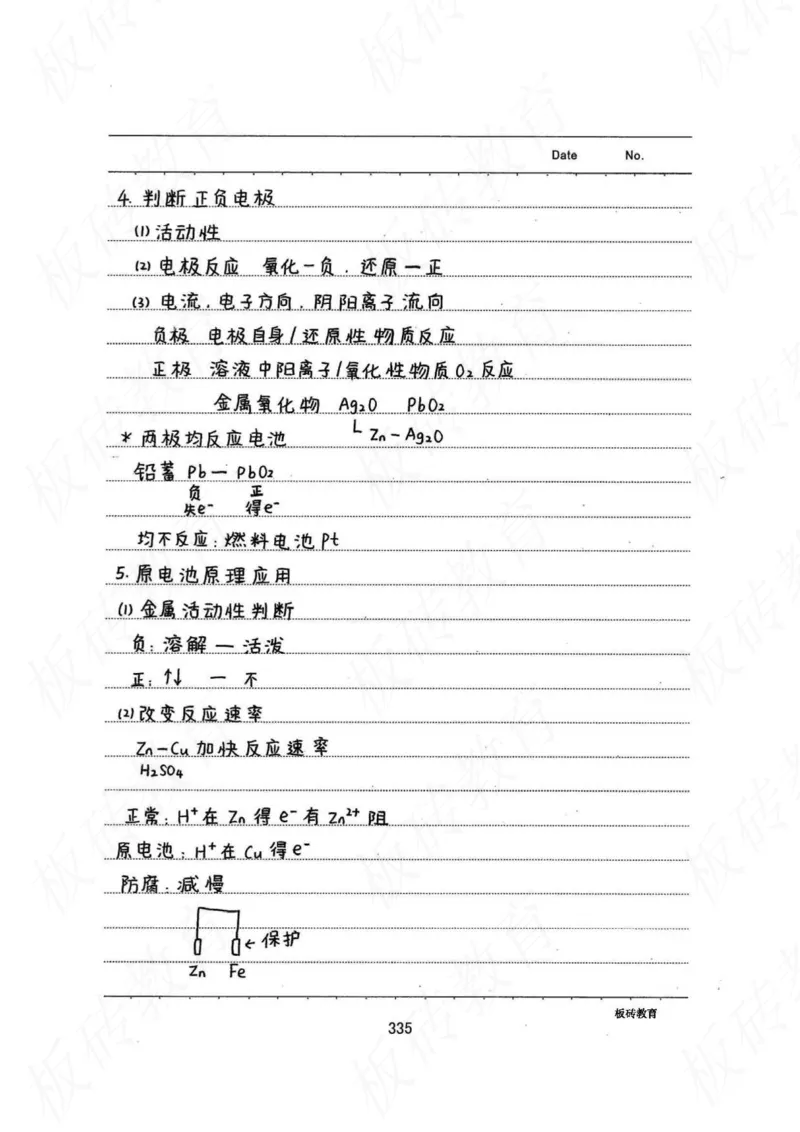 Date No.
4. 判断正负电极
(1) 活动性
(2) 电极反应 氧化—负. 还原—正
(3) 电流. 电子方向. 阴阳离子流向
负极 电极自身/还原性物质反应
正极 溶液中阳离子/氧化性物质O₂反应
金属氧化物 Ag₂O PbO₂
* 两极均反应电池 Zn-Ag₂O
铅蓄 Pb — PbO₂
负 正
失e⁻ 得e⁻
均不反应: 燃料电池Pt
5. 原电池原理应用
(1) 金属活动性判断
负: 溶解 — 活泼
正: ↑↓ — 不
(2) 改变反应速率
Zn-Cu 加快反应速率
H₂SO₄
正常: H⁺在Zn得e⁻有Zn²⁺阻
原电池: H⁺在Cu得e⁻
防腐: 减慢
←保护
Zn Fe
板砖教育
335